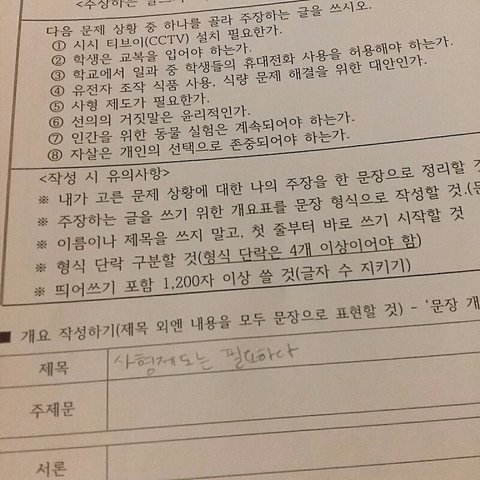 <주장하는
다음 문제 상황 중 하나를 골라 주장하는 글을 쓰시오.
① 시시 티브이(CCTV) 설치 필요한가.
② 학생은 교복을 입어야 하는가.
③ 학교에서 일과 중 학생들의 휴대전화 사용을 허용해야 하는가.
④ 유전자 조작 식품 사용, 식량 문제 해결을 위한 대안인가.
⑤ 사형 제도가 필요한가.
⑥ 선의의 거짓말은 윤리적인가.
⑦ 인간을 위한 동물 실험은 계속되어야 하는가.
⑧ 자살은 개인의 선택으로 존중되어야 하는가.
<작성 시 유의사항>
※ 내가 고른 문제 상황에 대한 나의 주장을 한 문장으로 정리할 것
※ 주장하는 글을 쓰기 위한 개요표를 문장 형식으로 작성할 것.(문
※ 이름이나 제목을 쓰지 말고, 첫 줄부터 바로 쓰기 시작할 것
※ 형식 단락 구분할 것(형식 단락은 4개 이상이어야 함)
※ 띄어쓰기 포함 1,200자 이상 쓸 것(글자 수 지키기)
■ 개요 작성하기(제목 외엔 내용을 모두 문장으로 표현할 것) - '문장 개
제목 사형제도는 필요하다
주제문
서론